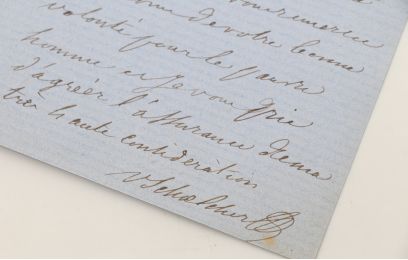 remercier
de votre bonne
volonté pour le pauvre
homme et je vous prie
d'agréer l'assurance de ma
très haute considération
V Schoelcher